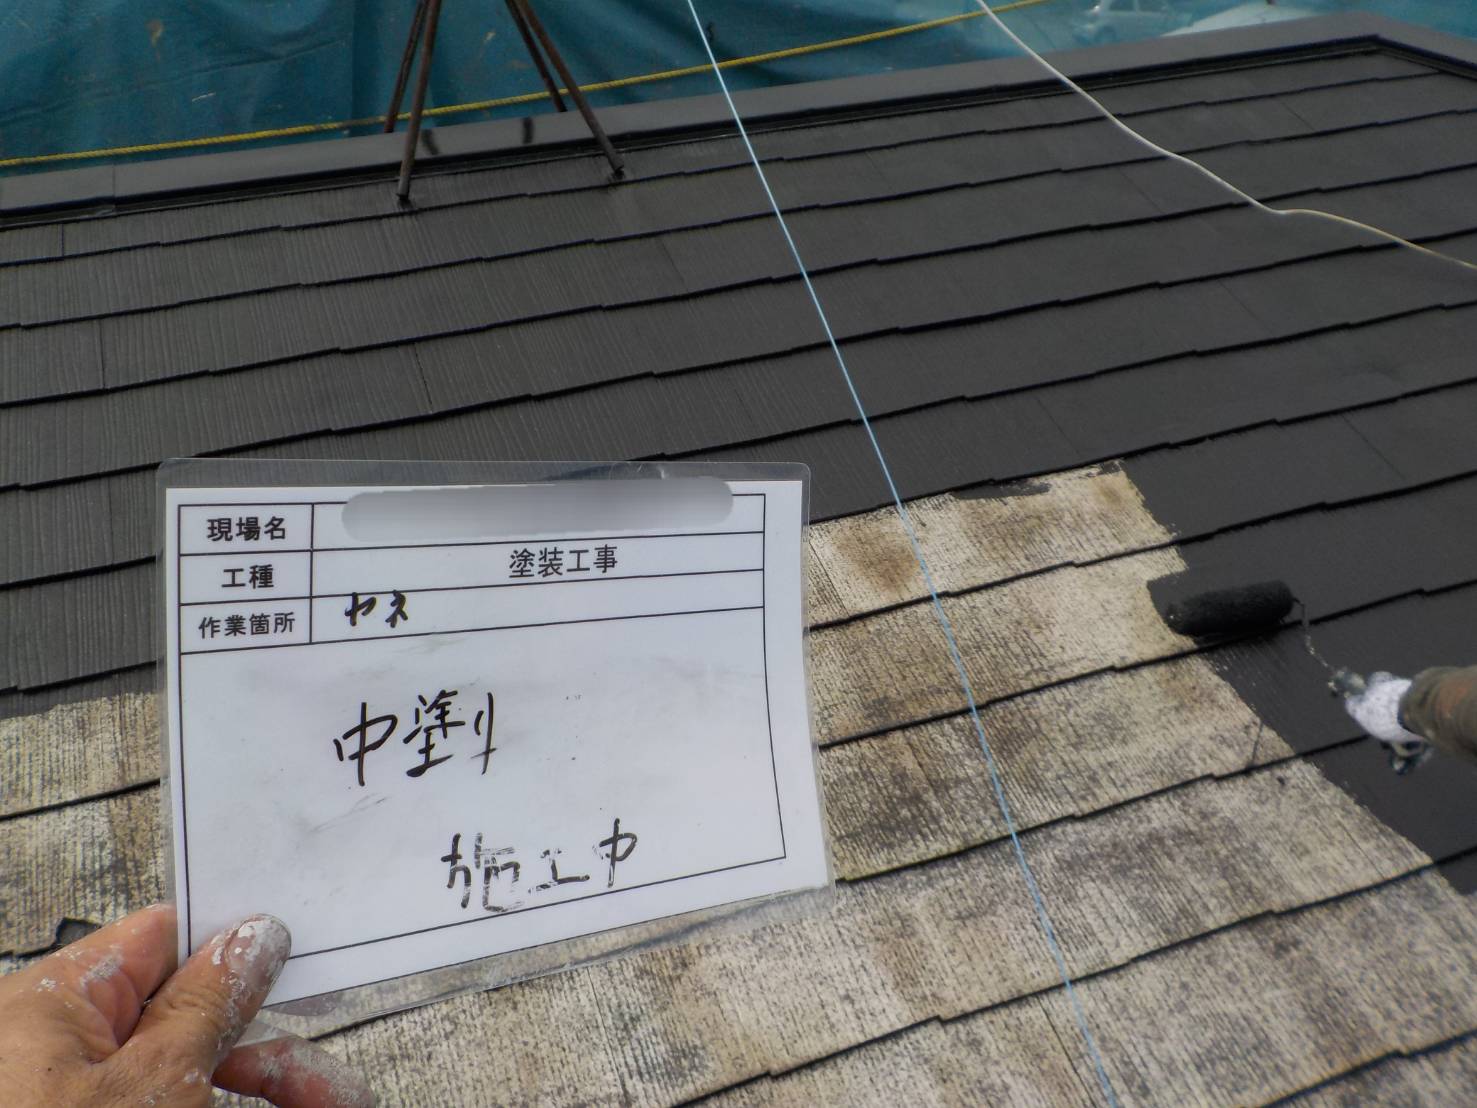 現場名
工種 塗装工事
作業箇所 ヤネ
中塗り
施工中